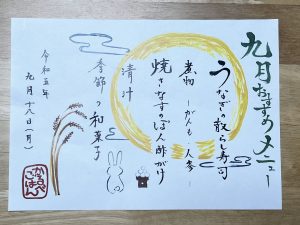 九月おすすめメニュー
うなぎ散らし寿司
煮物
ーがんも・人参ー
焼きなすのぽん酢がけ
清汁
季節の和菓子
令和五年
九月十八日（月）
ごはん